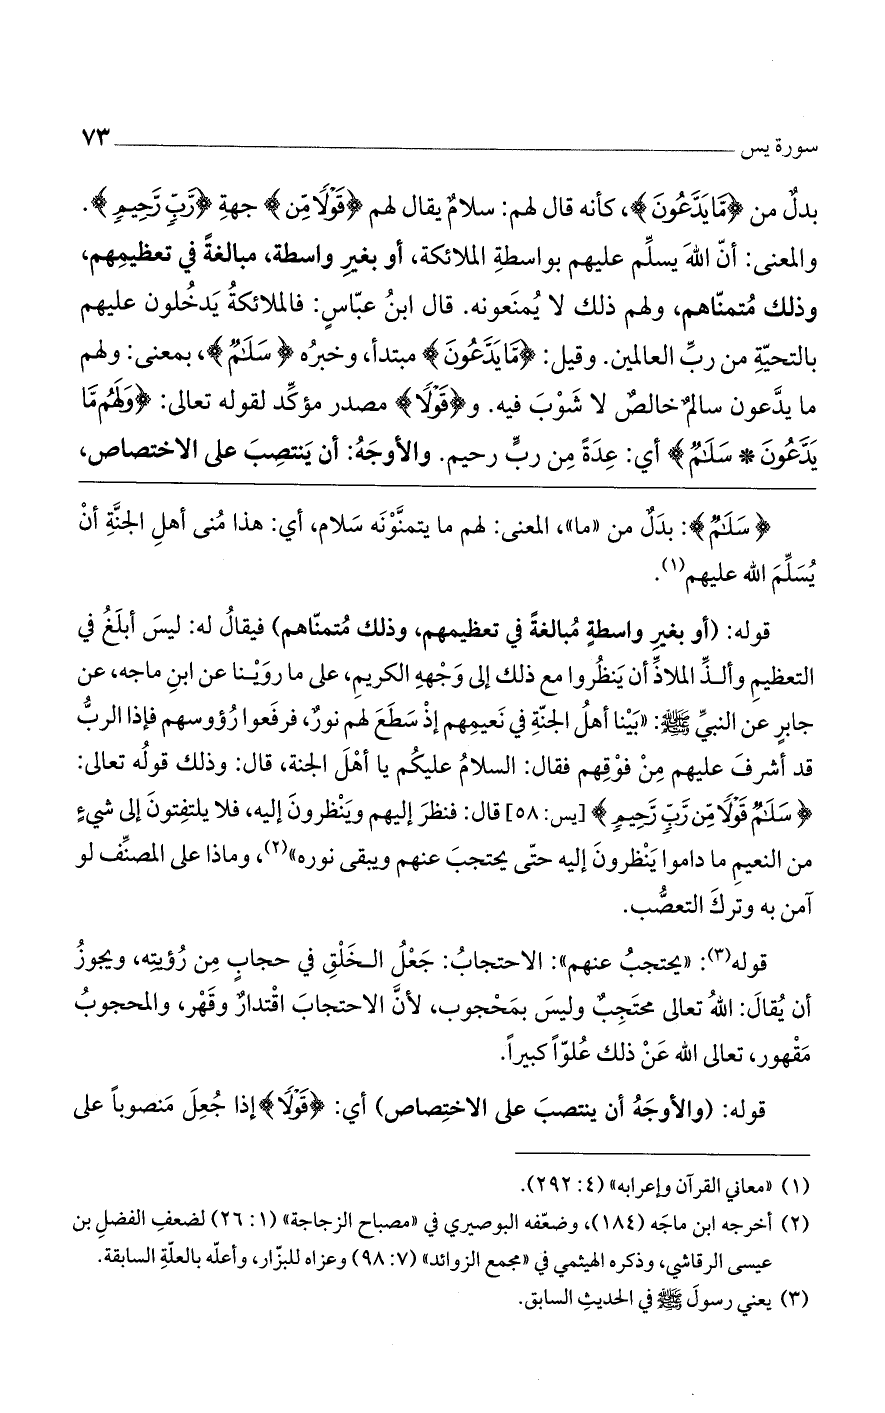 سورة يس ٧٣
بدلٌ من ﴿مَّا يَدَّعُونَ﴾، كأنه قال لهم: سلامٌ يقال لهم ﴿قَوْلًا مِّن﴾ جهةِ ﴿رَّبٍّ رَّحِيمٍ﴾.
والمعنى: أنّ اللهَ يسلِّم عليهم بواسطةِ الملائكة، أو بغيرِ واسطة، مبالغةً في تعظيمِهم،
وذلك مُتمنّاهم، ولهم ذلك لا يُمنَعونه. قال ابنُ عبّاسٍ: فالملائكةُ يَدخُلون عليهم
بالتحيّةِ من ربِّ العالمين. وقيل: ﴿مَّا يَدَّعُونَ﴾ مبتدأ، وخبرُه ﴿سَلَٰمٌ﴾، بمعنى: ولهم
ما يدَّعون سالمٌ خالصٌ لا شَوْبَ فيه. و﴿قَوْلًا﴾ مصدر مؤكِّد لقوله تعالى: ﴿وَلَهُم مَّا
يَدَّعُونَ * سَلَٰمٌ﴾ أي: عِدَةً مِن ربٍّ رحيم. والأوجَهُ: أن يَنتصِبَ على الاختصاص،
﴿سَلَٰمٌ﴾: بدَلٌ من «ما»، المعنى: لهم ما يتمنَّوْنَه سَلام، أي: هذا مُنى أهلِ الجنَّةِ أنْ
يُسَلِّمَ الله عليهم(١).
قوله: (أو بغيرِ واسطةٍ مُبالغةً في تعظيمهم، وذلك مُتمنّاهم) فيقالُ له: ليسَ أبلَغُ في
التعظيمِ وألـذِّ الملاذِّ أن يَنظُروا مع ذلك إلى وَجْههِ الكريم، على ما روَيْـنا عن ابنِ ماجه، عن
جابرٍ عن النبيِّ ﷺ: «بَيْنا أهلُ الجنّةِ في نَعيمِهم إذْ سَطَعَ لهم نورٌ، فرفَعوا رُؤوسهم فإذا الربُّ
قد أشرفَ عليهم مِنْ فوْقِهم فقال: السلامُ عليكُم يا أهْلَ الجنة، قال: وذلك قولُه تعالى:
﴿سَلَٰمٌ قَوْلًا مِّن رَّبٍّ رَّحِيمٍ﴾ [يس: ٥٨] قال: فنظرَ إليهم ويَنْظرونَ إليه، فلا يلتفِتونَ إلى شيءٍ
من النعيمِ ما داموا يَنْظرونَ إليه حتّى يحتجبَ عنهم ويبقى نوره»(٢)، وماذا على المصنِّف لو
آمن به وتركَ التعصُّب.
قوله(٣): «يحتجبُ عنهم»: الاحتجابُ: جَعْلُ الـخَلْقِ في حجابٍ مِن رُؤيتِه، ويجوزُ
أن يُقالَ: اللهُ تعالى محتَجِبٌ وليسَ بمَحْجوب، لأنَّ الاحتجابَ اقْتدارٌ وقَهْر، والمحجوبُ
مَقْهور، تعالى الله عَنْ ذلك عُلوّاً كبيراً.
قوله: (والأوجَهُ أن ينتصبَ على الاختِصاص) أي: ﴿قَوْلًا﴾ إذا جُعِلَ مَنصوباً على
(١) «معاني القرآن وإعرابه» (٤: ٢٩٢).
(٢) أخرجه ابن ماجَه (١٨٤)، وضعّفه البوصيري في «مصباح الزجاجة» (١: ٢٦) لضعفِ الفضلِ بن
عيسى الرقاشي، وذكره الهيثمي في «مجمع الزوائد» (٧: ٩٨) وعزاه للبزّار، وأعلّه بالعلّةِ السابقة.
(٣) يعني رسولَ ﷺ في الحديثِ السابق.